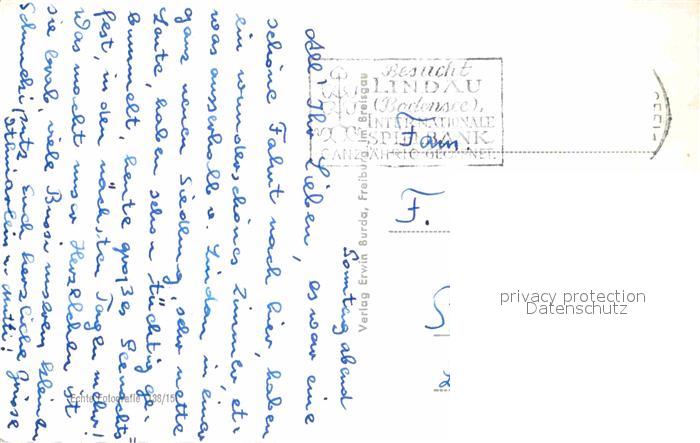 Sonntag abend
All' Ihr Lieben, es war eine
schöne Fahrt nach hier, haben
ein wunderschönes Zimmer, et-
was ausserhalb v. Lindau in einer
ganz neuen Siedlung, sehr nette
Leute, haben schon tüchtig ge-
bummelt, heute großes Seenachts=
fest, in den nächsten Tagen mehr!
Was macht unser Herzlchen ist
sie brav, viele Bussi unserem kleinen
Schnucki, Euch herzliche Grüsse
u. Mutti!
Besucht
LINDAU
(Bodensee),
INTERNATIONALE
SPIELBANK
GANZJÄHRIG GEÖFFNET.
Fam.
F.
Verlag Erwin Burda, Freiburg im Breisgau
Echte Fotografie 138/15
privacy protection
Datenschutz